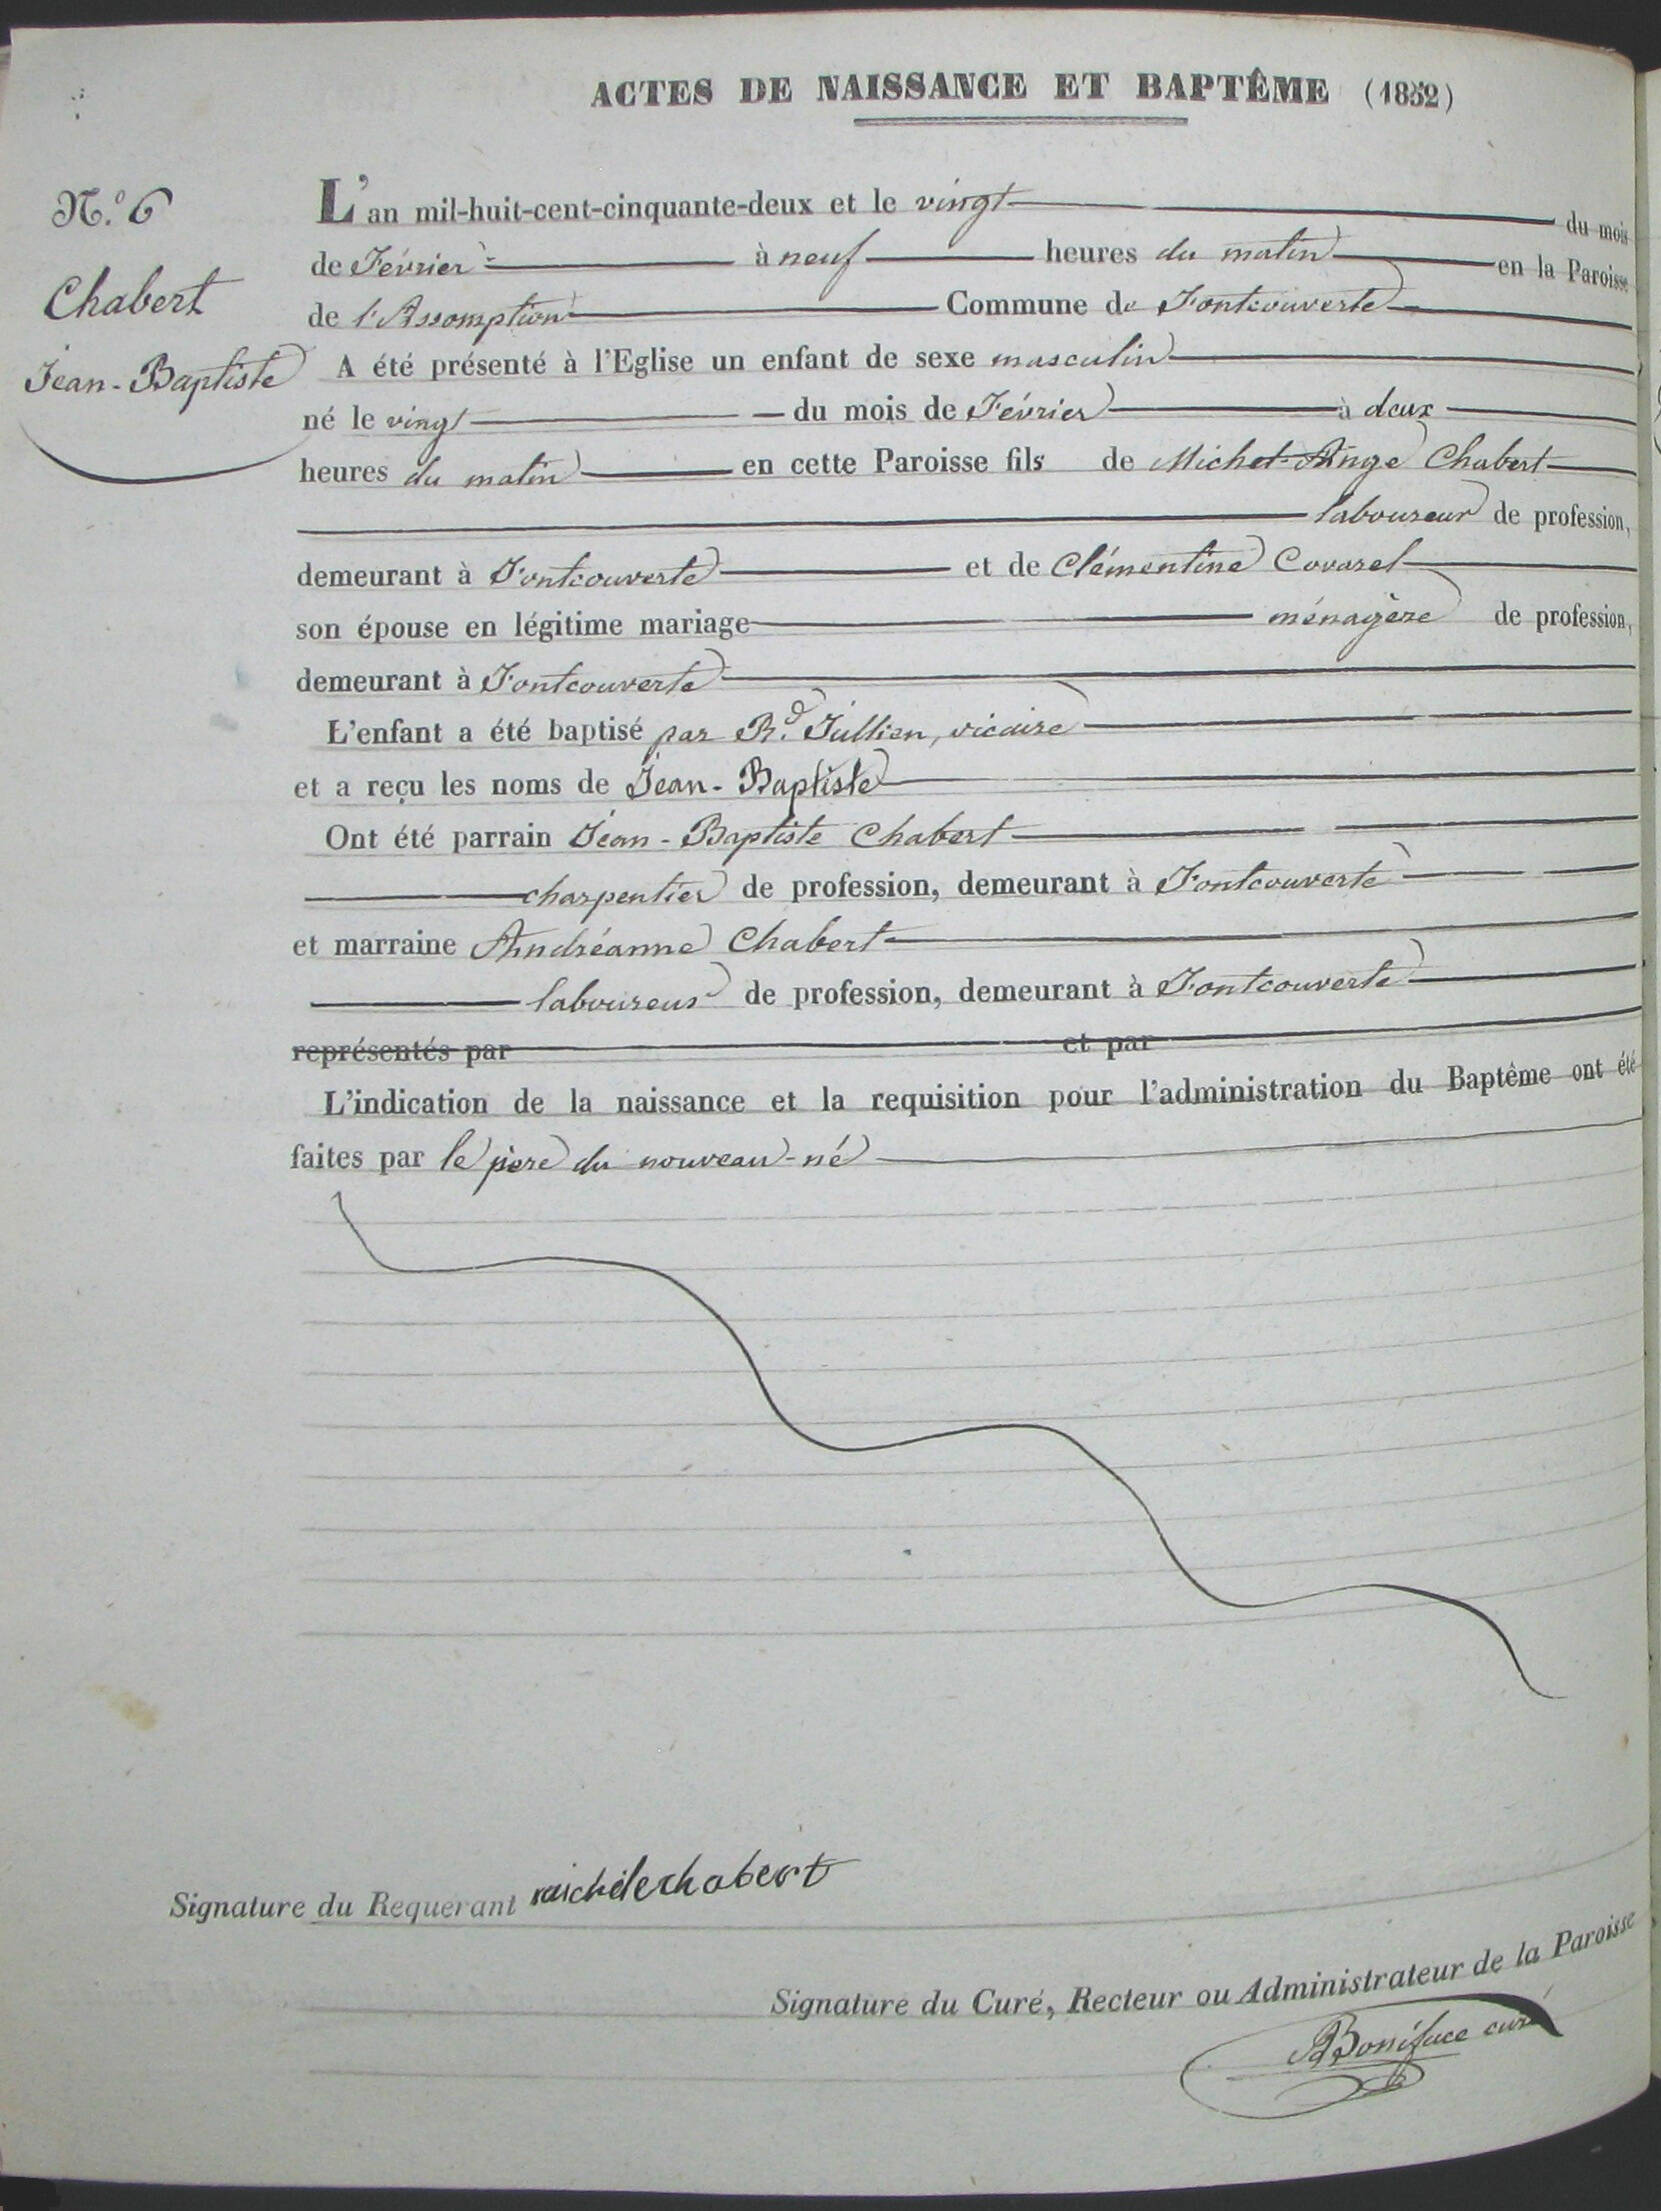 ACTES DE NAISSANCE ET BAPTÊME (1852)
N.º 6
Chabert
Jean-Baptiste
L'an mil-huit-cent-cinquante-deux et le vingt du mois
de Février à neuf heures du matin en la Paroisse
de l'Assomption Commune de Fontcouverte
A été présenté à l'Eglise un enfant de sexe masculin
né le vingt du mois de Février à deux
heures du matin en cette Paroisse fils de Michel-Ange Chabert
laboureur de profession,
demeurant à Fontcouverte et de Clémentine Covarel
son épouse en légitime mariage ménagère de profession,
demeurant à Fontcouverte
L'enfant a été baptisé par R.d Jullien, vicaire
et a reçu les noms de Jean-Baptiste
Ont été parrain Jean-Baptiste Chabert
charpentier de profession, demeurant à Fontcouverte
et marraine Andréanne Chabert
laboureus de profession, demeurant à Fontcouverte
représentés par et par
L'indication de la naissance et la requisition pour l'administration du Baptême ont été
faites par le père du nouveau-né
Signature du Requerant michelechabert
Signature du Curé, Recteur ou Administrateur de la Paroisse
Boniface curé